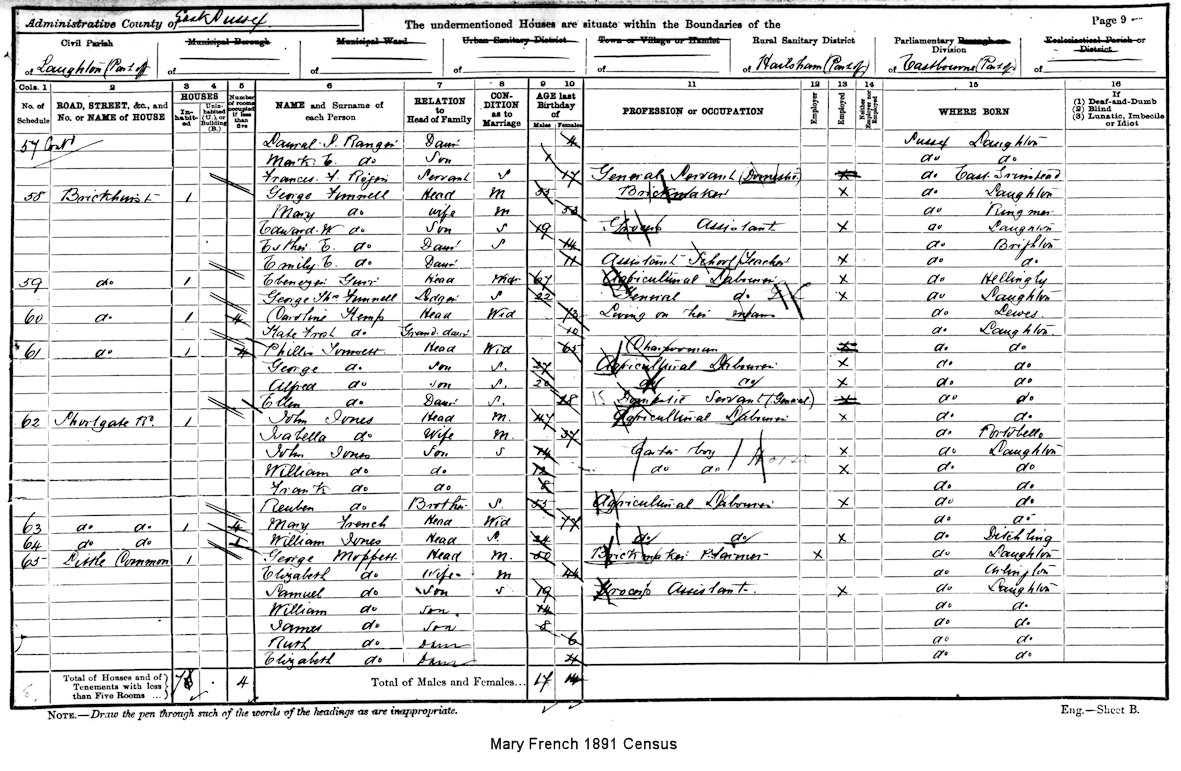 Administrative County of East Sussex
The undermentioned Houses are situate within the Boundaries of the
Page 9
Civil Parish
of Laughton (Part of)
Municipal Borough
of
Municipal Ward
of
Urban Sanitary District
of
Town or Village or Hamlet
of
Rural Sanitary District
of Hailsham (Part of)
Parliamentary Borough or Division
of Eastbourne (Part of)
Ecclesiastical Parish or District
of
Cols. 1 2 3 4 5 6 7 8 9 10 11 12 13 14 15 16
No. of Schedule
ROAD, STREET, &c., and No. or NAME of HOUSE
HOUSES
Inhabited
Uninhabited (U.) or Building (B.)
Number of rooms occupied if less than five
NAME and Surname of each Person
RELATION to Head of Family
CONDITION as to Marriage
AGE last Birthday of
Males Females
PROFESSION or OCCUPATION
Employer
Employed
Neither Employer nor Employed
WHERE BORN
If
(1) Deaf-and-Dumb
(2) Blind
(3) Lunatic, Imbecile or Idiot
57 Cont Ranger Daur 4 Sussex Laughton
Mark E. do Son do do
Frances Servant S 17 General Servant (Domestic) do East Grinstead
58 Brickhurst 1 George Funnell Head M 53 Brickmaker X do Laughton
Mary do Wife M 53 do Ringmer
Edward W do Son S 19 Grocers Assistant X do Laughton
Esther E. do Daur S 14 do Brighton
Emily E. do Daur 11 Assistant School Teacher X do do
59 do 1 Ebenezer Head Widr 67 Agricultural Labourer X do Hellingly
George Thos Funnell Lodger S 22 General do X do Laughton
60 do 1 4 Caroline Kemp Head Wid 73 Living on her do Lewes
Kate do Grand daur 10 do Laughton
61 do 1 4 Head Wid 65 Charwoman X do do
George do Son S. 27 Agricultural Labourer X do do
Alfred do Son S. 20 do do X do do
Ellen do Daur S. 18 Domestic Servant (General) X do do
62 Shortgate Rd. 1 John Jones Head M. 47 Agricultural Labourer X do do
Isabella do Wife M. 37 do Portobello
John Jones Son S 14 boy X do Laughton
William do do 12 do do X do do
Frank do do 8 do do
Reuben do Brother S. 53 Agricultural Labourer X do do
63 do do 1 4 Mary French Head Wid 77 do do
64 do do William Jones Head S. 24 do do X do Ditchling
65 Little Common 1 George Moppett Head M. 50 Brickmaker Farmer X do Laughton
Elizabeth do Wife M 44 do Arlington
Samuel do Son S 19 Grocers Assistant. X do Laughton
William do Son. 14 do do
James do Son 8 do do
Ruth do Daur 6 do do
Elizabeth do Daur 4 do do
Total of Houses and of Tenements with less than Five Rooms ... 4
Total of Males and Females... 17 14
NOTE.—Draw the pen through such of the words of the headings as are inappropriate.
Eng.—Sheet B.
Mary French 1891 Census